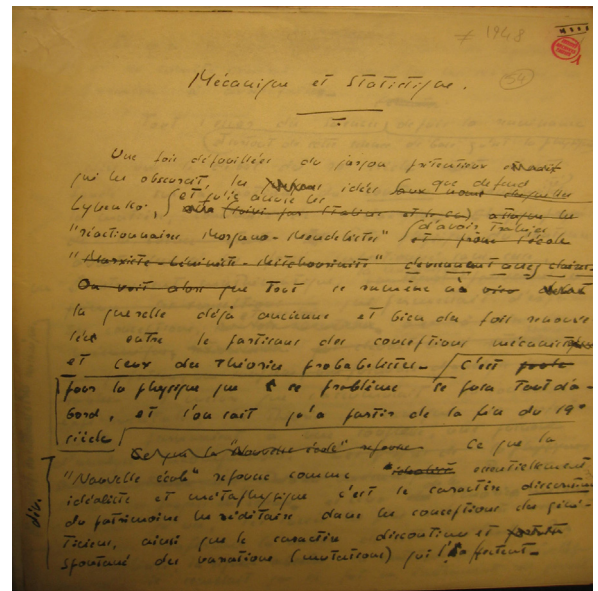 ≠ 1948
54
Mécanique et Statistique.
I.
Une fois dépouillées du jargon prétentieux
qui les obscurcit, les idées que défend
Lyssenko,
"réactionnaires Morgano-Mendélistes" d'avoir trahi
et prôner l'école
"Marxiste-Léniniste-Mitchourinste" deviennent assez claires.
On voit alors que tout se ramène à
la querelle déjà ancienne et bien du fois renouve
lée entre le partisans des conceptions mécanistes
et ceux du théories probabilistes. C'est
pour la physique que ce problème se posa tout d'a-
bord, et l'on sait qu'à partir de la fin du 19e
siècle
Ce que la
"Nouvelle école" refouse comme essentiellement
idéaliste et métaphysique c'est le caractère discontinu
du patrimoine héréditaire dans les conceptions du géné-
ticien, ainsi que le caractère discontinu et
spontané des variations (mutations) qui l'affectent.
div.